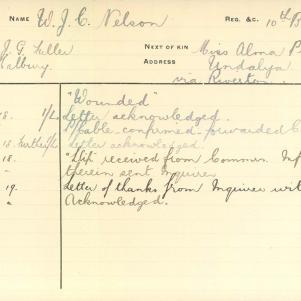 NAME W. J. C. Nelson REG. &C. 10th
J. G. Feller NEXT OF KIN Miss Alma
ADDRESS Undalya
via Riverton
"Wounded"
8. Letter acknowledged.
cable confirmed. forwarded
8. Further letter acknowledged.
18. received from Commun. Inf
" therein sent Inquirer
19. Letter of thanks from Inquirer
" Acknowledged.